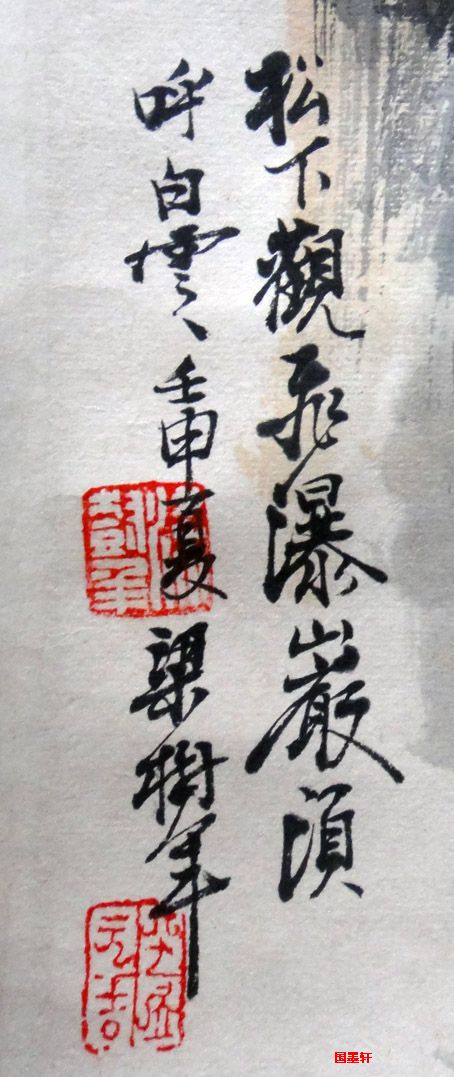 松下觀飛瀑巖頂
呼白雲、壬申夏梁樹年
国墨轩